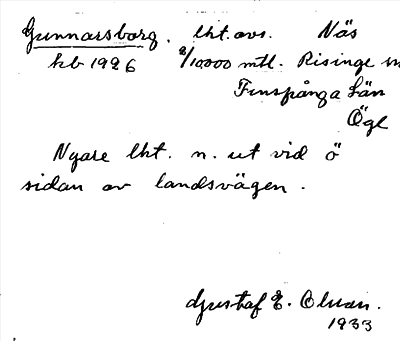 Gunnarsborg. lht. avs. Näs
kb 1926 8/10000 mtl. Risinge
Finspånga Län
Ögl
Nyare lht. n. ut vid ö
sidan av landsvägen.
Gustaf E. Olman.
1933